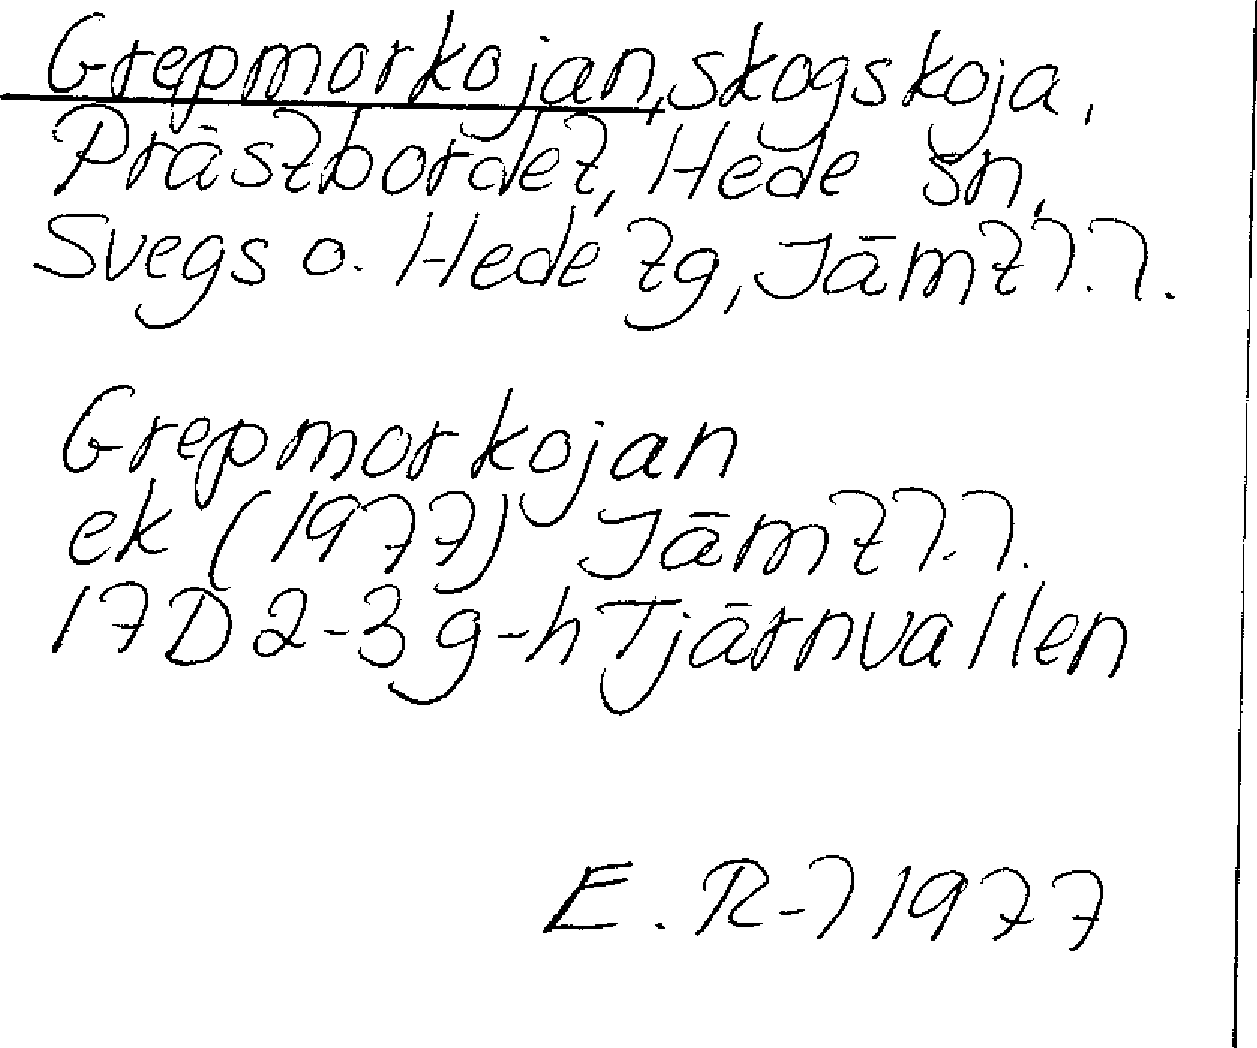 Grepmorkojan, skogskoja,
Prästbordet, Hede sn,
Svegs o. Hede tg, Jämtl.l.
Grepmorkojan
ek (1977) Jämtl.l.
17D 2-3 g-h Tjärnvallen
E. R-l 1977